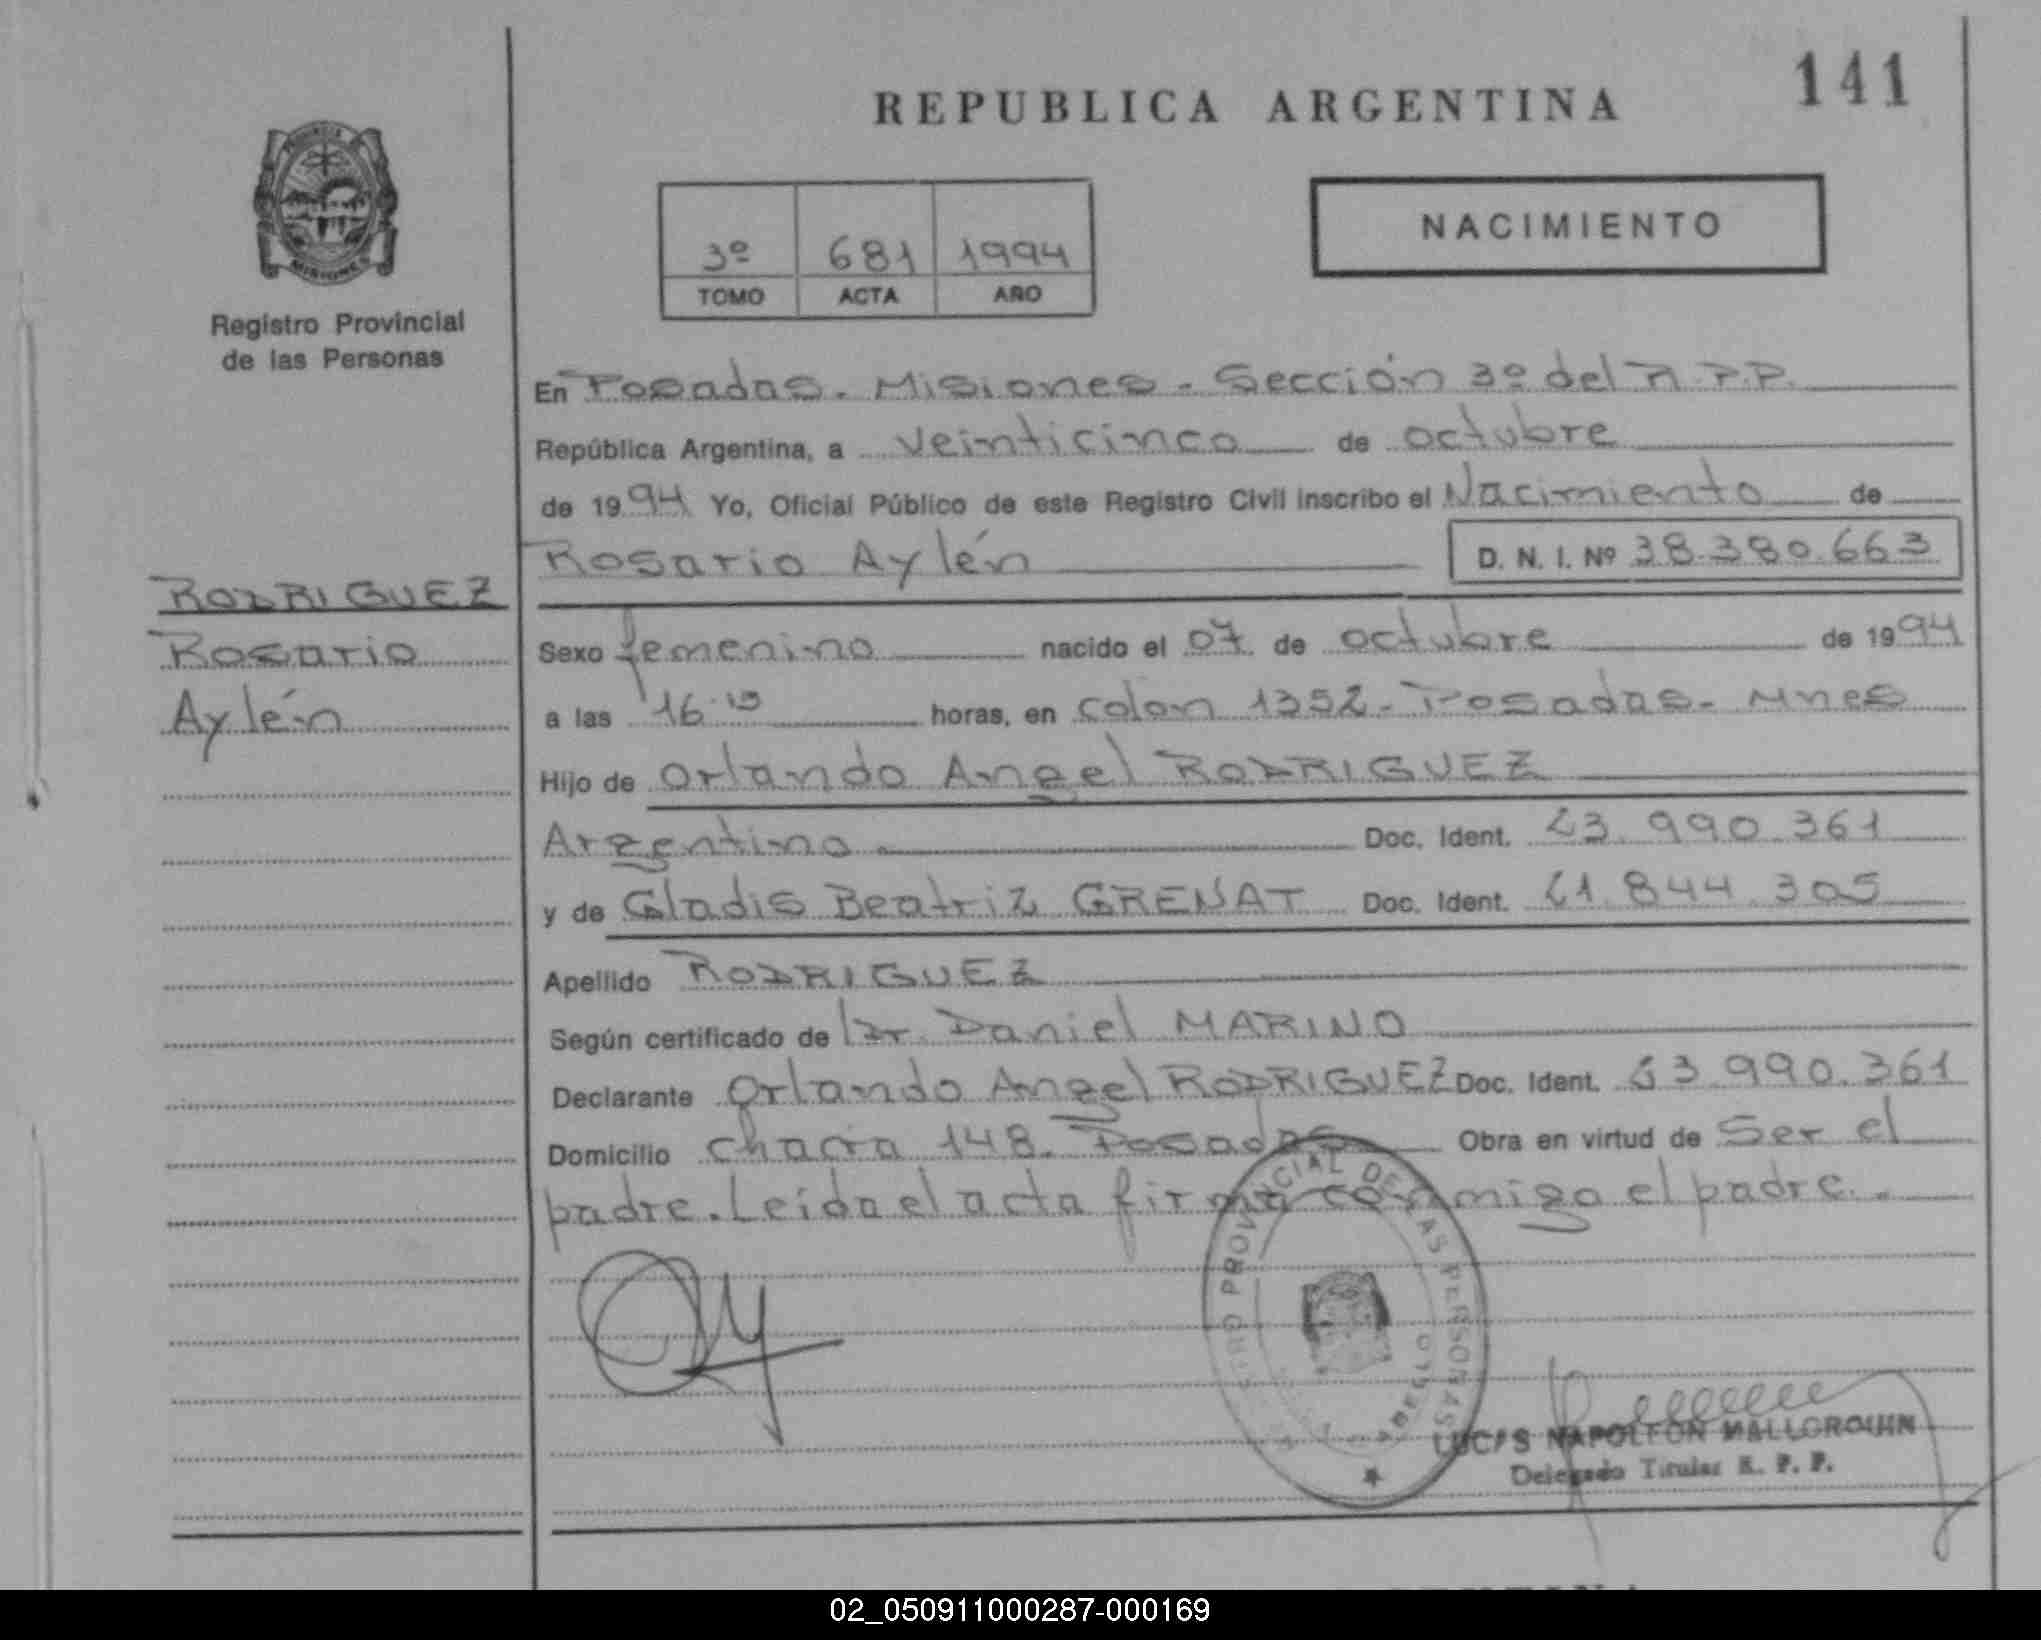 REPUBLICA ARGENTINA
141
NACIMIENTO
3º 681 1994
TOMO ACTA AÑO
PROVINCIA
MISIONES
Registro Provincial
de las Personas
RODRIGUEZ
Rosario
Aylén
En Posadas. Misiones - Sección 3º del R.P.P.
República Argentina, a veinticinco de octubre
de 1994 Yo, Oficial Público de este Registro Civil inscribo el Nacimiento de
Rosario Aylén D. N. I. Nº 38.380.663
Sexo femenino nacido el 07 de octubre de 1994
a las 16.15 horas, en colon 1352- Posadas- Mnes
Hijo de Orlando Angel RODRIGUEZ
Argentino Doc. Ident. 23.990.361
y de Gladis Beatriz GRENAT Doc. Ident. 21.844.305
Apellido RODRIGUEZ
Según certificado de Dr. Daniel MARINO
Declarante Orlando Angel RODRIGUEZ Doc. Ident. 23.990.361
Domicilio chacra 148. Posadas Obra en virtud de Ser el
padre. Leída el acta firma conmigo el padre.
PROVINCIAL DE LAS PERSONAS
LUCAS NAPOLEON
Delegado Titular R. P. P.
02_050911000287-000169